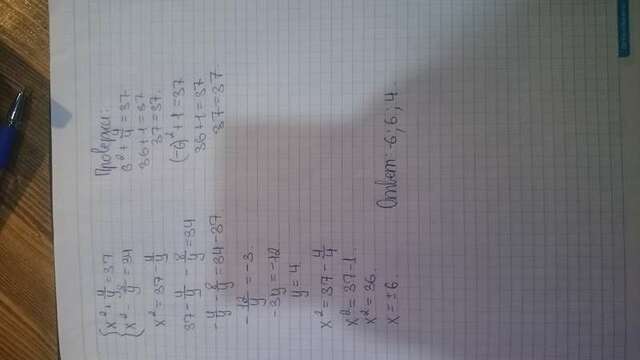 x² + 4/y = 37
x² - 8/y = 34
x² = 37 - 4/y
37 - 4/y - 8/y = 34
- 4/y - 8/y = 34 - 37
- 12/y = -3.
-3y = -12
y = 4.
x² = 37 - 4/4
x² = 37 - 1.
x² = 36.
x = ±6.
Проверка:
6² + 4/4 = 37
36 + 1 = 37
37 = 37.
(-6)² + 1 = 37
36 + 1 = 37
37 = 37.
Ответ: -6; 6; 4.